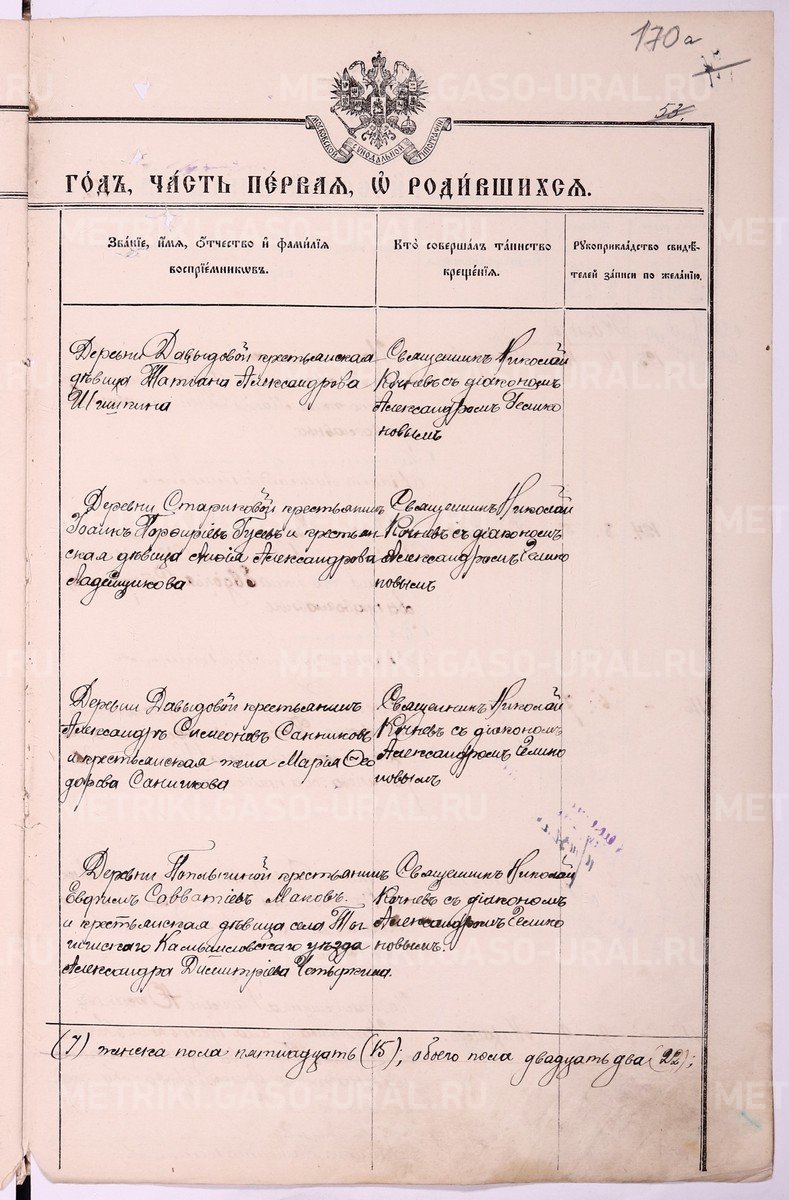 170а
53.
МОСКОВСКОЙ СѴНОДАЛЬНОЙ ТИПОГРАФІИ
ГО́ДЪ, ЧА́СТЬ ПЕ́РВАЯ, Ѡ РОДИ́ВШИХСЯ.
Зва́нїе, и́мя, о́тчество и҆ фами́лїя
воспрїе́мникѡвъ.
Кто̀ соверша́лъ та́инство
креще́нїя.
Рукоприкла́дство свидѣ́-
телей за́писи по жела́нїю.
Деревни Давыдовой крестьянская
дѣвица Татіана Александрова
Шишкина
Священникъ Николай
Кочневъ съ діакономъ
Александромъ Челно
ковымъ
Деревни Стариковой крестьянинъ
Іоаннъ Порфиріевъ Гусевъ и крестьян
ская дѣвица Александрова
Ладейщикова
Священникъ Николай
Кочневъ съ діакономъ
Александромъ Челно
ковымъ
Деревни Давыдовой крестьянинъ
Александръ Симеоновъ Санниковъ
и крестьянская жена Марія Ѳео
дорова Санникова
Священникъ Николай
Кочневъ съ діакономъ
Александромъ Челно
ковымъ
Деревни крестьянинъ
Евфимъ Савватіевъ Маковъ.
и крестьянская дѣвица села
Камышловскаго уѣзда
Александра Димитріева
Священникъ Николай
Кочневъ съ діакономъ
Александромъ Челно
ковымъ.
(7) женска пола пятнадцать (15), обоего пола двадцать два (22);
METRIKI.GASO-URAL.RU